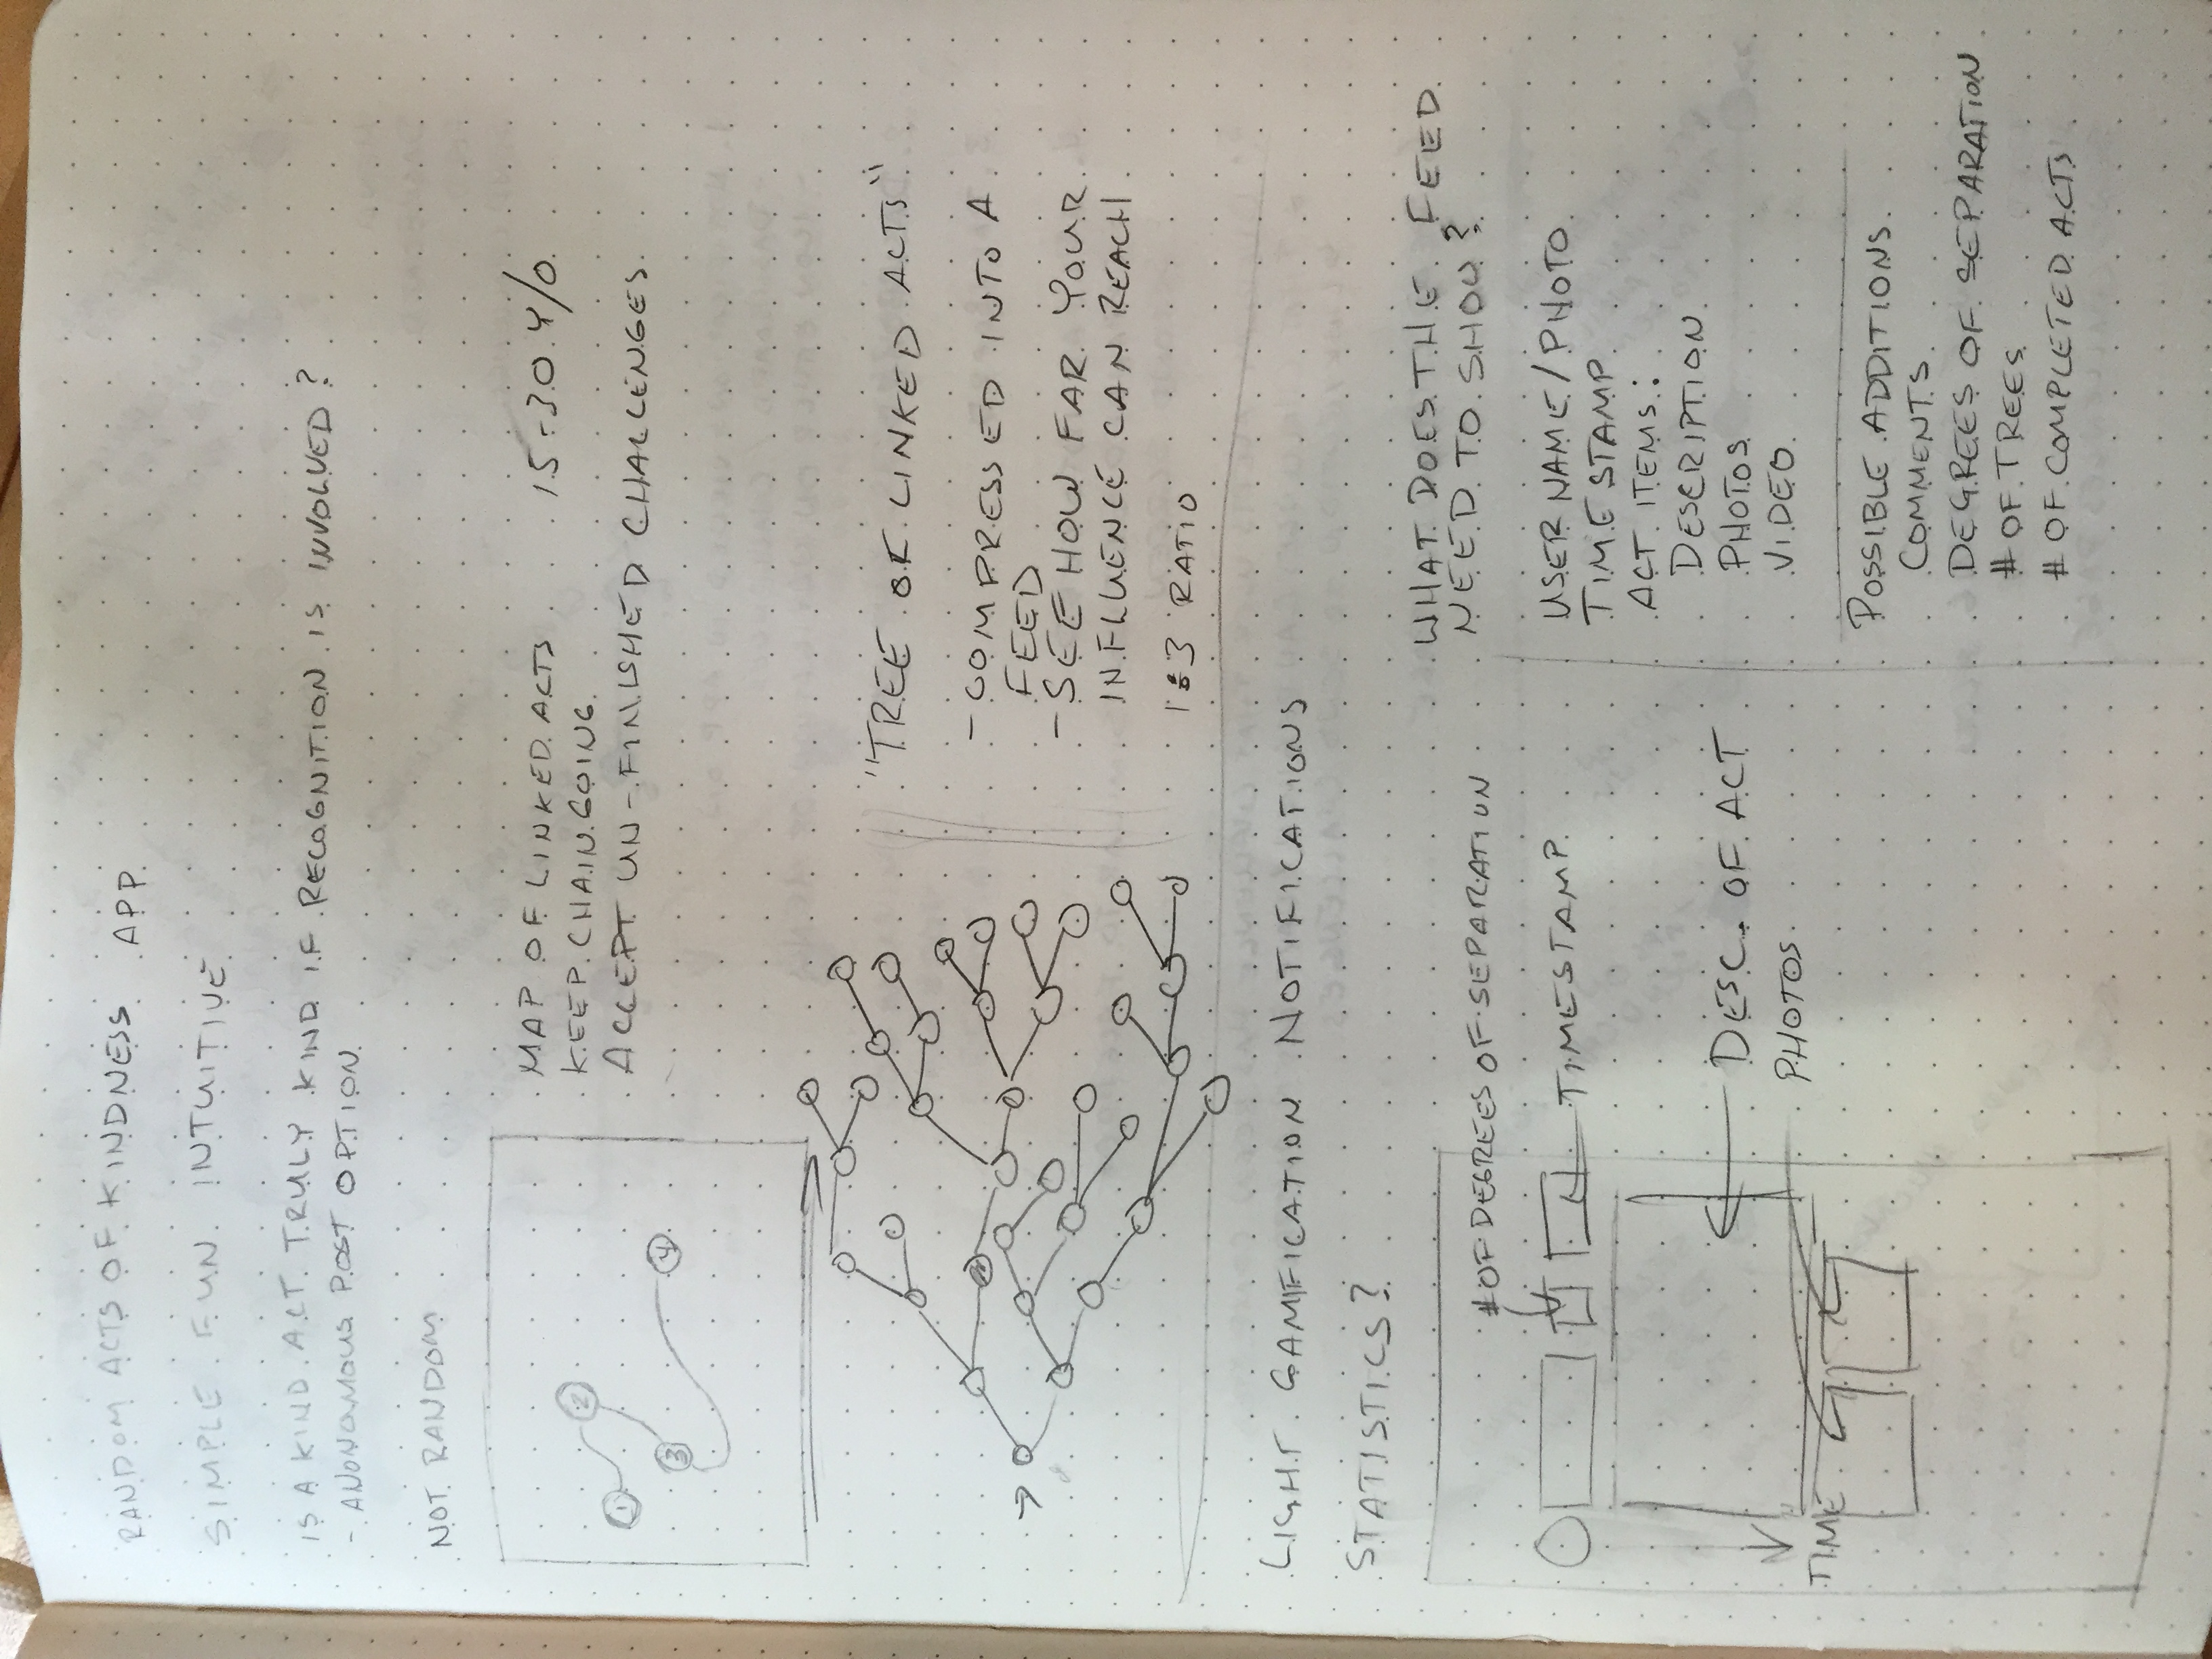 RANDOM ACTS OF KINDNESS APP
SIMPLE FUN INTUITIVE
IS A KIND ACT TRULY KIND IF RECOGNITION IS INVOLVED?
- ANONOMOUS POST OPTION
NOT RANDOM
1
2
3
4
MAP OF LINKED ACTS
15-30 Y/O
KEEP CHAIN GOING
ACCEPT UN-FINISHED CHALLENGES
"TREE OF LINKED ACTS"
- COMPRESSED INTO A
FEED
- SEE HOW FAR YOUR
INFLUENCE CAN REACH
1:3 RATIO
LIGHT GAMIFICATION NOTIFICATIONS
STATISTICS?
# OF DEGREES OF SEPARATION
TIMESTAMP
DESC. OF ACT
PHOTOS
TIME
WHAT DOES THE FEED
NEED TO SHOW?
USER NAME/PHOTO
TIME STAMP
ACT ITEMS:
DESCRIPTION
PHOTOS
VIDEO
POSSIBLE ADDITIONS
COMMENTS
DEGREES OF SEPARATION
# OF TREES
# OF COMPLETED ACTS